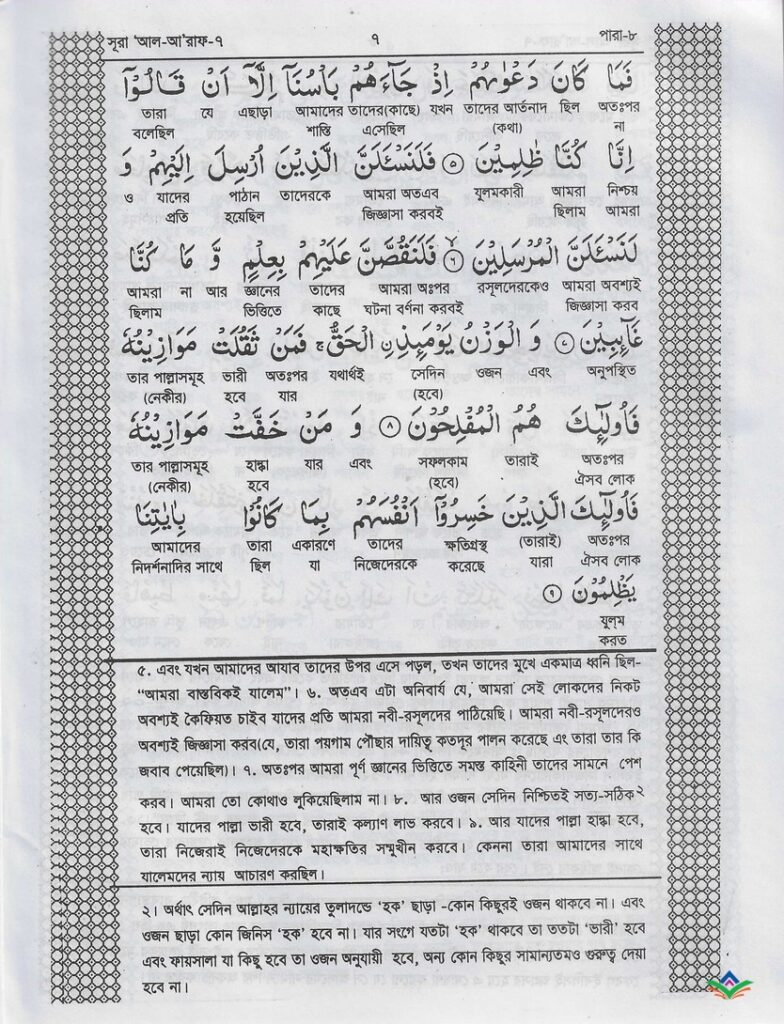 সূরা 'আল-আ'রাফ-৭ ৭ পারা-৮
فَمَا كَانَ دَعْوٰىهُمْ اِذْ جَآءَهُمْ بَاْسُنَآ اِلَّآ اَنْ قَالُوْٓا
তারা যে এছাড়া আমাদের তাদের(কাছে) যখন তাদের আর্তনাদ ছিল অতঃপর
বলেছিল শাস্তি এসেছিল (কথা) না
اِنَّا كُنَّا ظٰلِمِيْنَ ۝٥ فَلَنَسْـَٔلَنَّ الَّذِيْنَ اُرْسِلَ اِلَيْهِمْ وَ
ও যাদের পাঠান তাদেরকে আমরা অতএব যুলমকারী আমরা নিশ্চয়
প্রতি হয়েছিল জিজ্ঞাসা করবই ছিলাম আমরা
لَنَسْـَٔلَنَّ الْمُرْسَلِيْنَ ۝٦ فَلَنَقُصَّنَّ عَلَيْهِمْ بِعِلْمٍ وَّ مَا كُنَّا
আমরা না আর জ্ঞানের তাদের আমরা অঃপর রসূলদেরকেও আমরা অবশ্যই
ছিলাম ভিত্তিতে কাছে ঘটনা বর্ণনা করবই জিজ্ঞাসা করব
غَآىِٕبِيْنَ ۝٧ وَ الْوَزْنُ يَوْمَىِٕذِ ِۨالْحَقُّ ۚ فَمَنْ ثَقُلَتْ مَوَازِيْنُهٗ
তার পাল্লাসমূহ ভারী অতঃপর যথার্থই সেদিন ওজন এবং অনুপস্থিত
(নেকীর) হবে যার (হবে)
فَاُولٰٓىِٕكَ هُمُ الْمُفْلِحُوْنَ ۝٨ وَ مَنْ خَفَّتْ مَوَازِيْنُهٗ
তার পাল্লাসমূহ হাল্কা যার এবং সফলকাম তারাই অতঃপর
(নেকীর) হবে (হবে) ঐসব লোক
فَاُولٰٓىِٕكَ الَّذِيْنَ خَسِرُوْٓا اَنْفُسَهُمْ بِمَا كَانُوْا بِاٰيٰتِنَا
আমাদের তারা একারণে তাদের ক্ষতিগ্রস্থ (তারাই) অতঃপর
নিদর্শনাদির সাথে ছিল যা নিজেদেরকে করেছে যারা ঐসব লোক
يَظْلِمُوْنَ ۝٩
যুলুম
করত
৫. এবং যখন আমাদের আযাব তাদের উপর এসে পড়ল, তখন তাদের মুখে একমাত্র ধ্বনি ছিল-
“আমরা বাস্তবিকই যালেম”। ৬. অতএব এটা অনিবার্য যে, আমরা সেই লোকদের নিকট
অবশ্যই কৈফিয়ত চাইব যাদের প্রতি আমরা নবী-রসূলদের পাঠিয়েছি। আমরা নবী-রসূলদেরও
অবশ্যই জিজ্ঞাসা করব(যে, তারা পয়গাম পৌছার দায়িত্ব কতদূর পালন করেছে এং তারা তার কি
জবাব পেয়েছিল)। ৭. অতঃপর আমরা পূর্ণ জ্ঞানের ভিত্তিতে সমস্ত কাহিনী তাদের সামনে পেশ
করব। আমরা তো কোথাও লুকিয়েছিলাম না। ৮. আর ওজন সেদিন নিশ্চিতই সত্য-সঠিক২
হবে। যাদের পাল্লা ভারী হবে, তারাই কল্যাণ লাভ করবে। ৯. আর যাদের পাল্লা হাল্কা হবে,
তারা নিজেরাই নিজেদেরকে মহাক্ষতির সম্মুখীন করবে। কেননা তারা আমাদের সাথে
যালেমদের ন্যায় আচারণ করছিল।
২। অর্থাৎ সেদিন আল্লাহর ন্যায়ের তুলাদন্ডে ‘হক’ ছাড়া -কোন কিছুরই ওজন থাকবে না। এবং
ওজন ছাড়া কোন জিনিস ‘হক’ হবে না। যার সংগে যতটা ‘হক’ থাকবে তা ততটা ‘ভারী’ হবে
এবং ফায়সালা যা কিছু হবে তা ওজন অনুযায়ী হবে, অন্য কোন কিছুর সামান্যতমও গুরুত্ব দেয়া
হবে না।